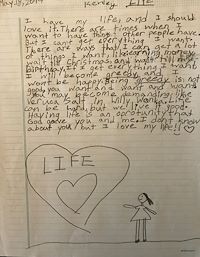 May 18, 2017 Kerley LIFE
I have my life, and I should
love it. There are times when I
want to have things other people have,
But I cant get everything I want.
There are ways that I can get a lot
of things I want, like earning money,
wait till Christmas, and wait till my
Birthday. If I get everything I want,
I will become greedy and I
won't be happy. Being greedy is not
good, you want and want and want.
You may become demanding like
Veruca Salt in Willy Wonka. Life
can be hard, but we live it good.
Having life is an oportunity that
God gave you and me. I don't know
about you, but I love my life!!
LIFE